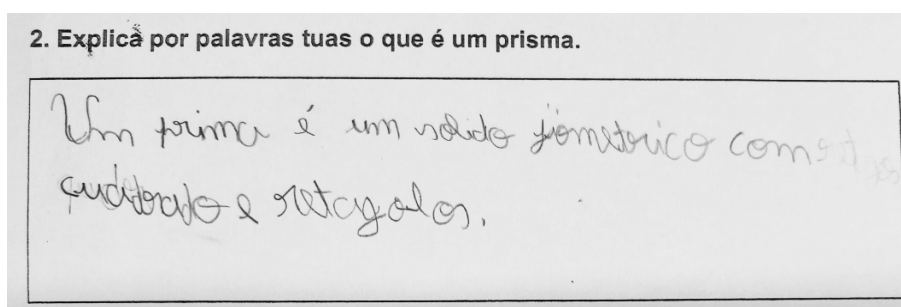 2. Explica por palavras tuas o que é um prisma.
Um prima é um solido jiometrico com
cudrado e retagolos.